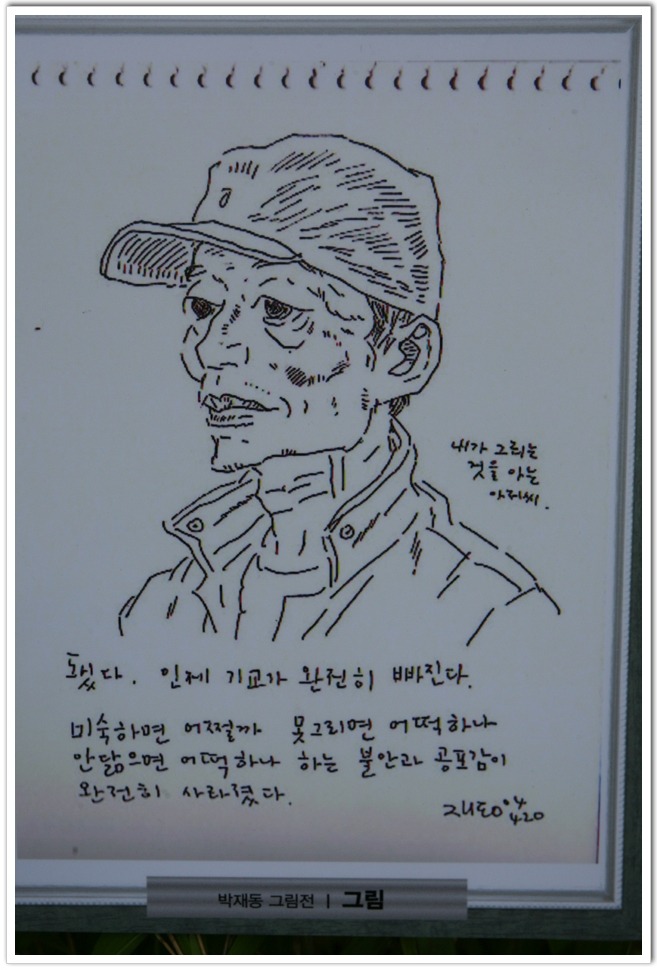 내가 그리는
것을 아는
아저씨.
됐다. 인제 기교가 완전히 빠진다.
미숙하면 어쩔까 못그리면 어떡하나
안닮으면 어떡하나 하는 불안과 공포감이
완전히 사라졌다.
재동 '04
4.20
박재동 그림전 | 그림